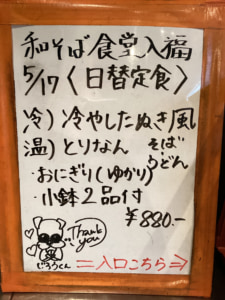 和そば食堂入福
5/17〈日替定食〉
冷)冷やしたぬき風
温)とりなん そば うどん
・おにぎり(ゆかり)
・小鉢2品付
￥880.-
Thank you
じろうくん
＝入口こちら⇒